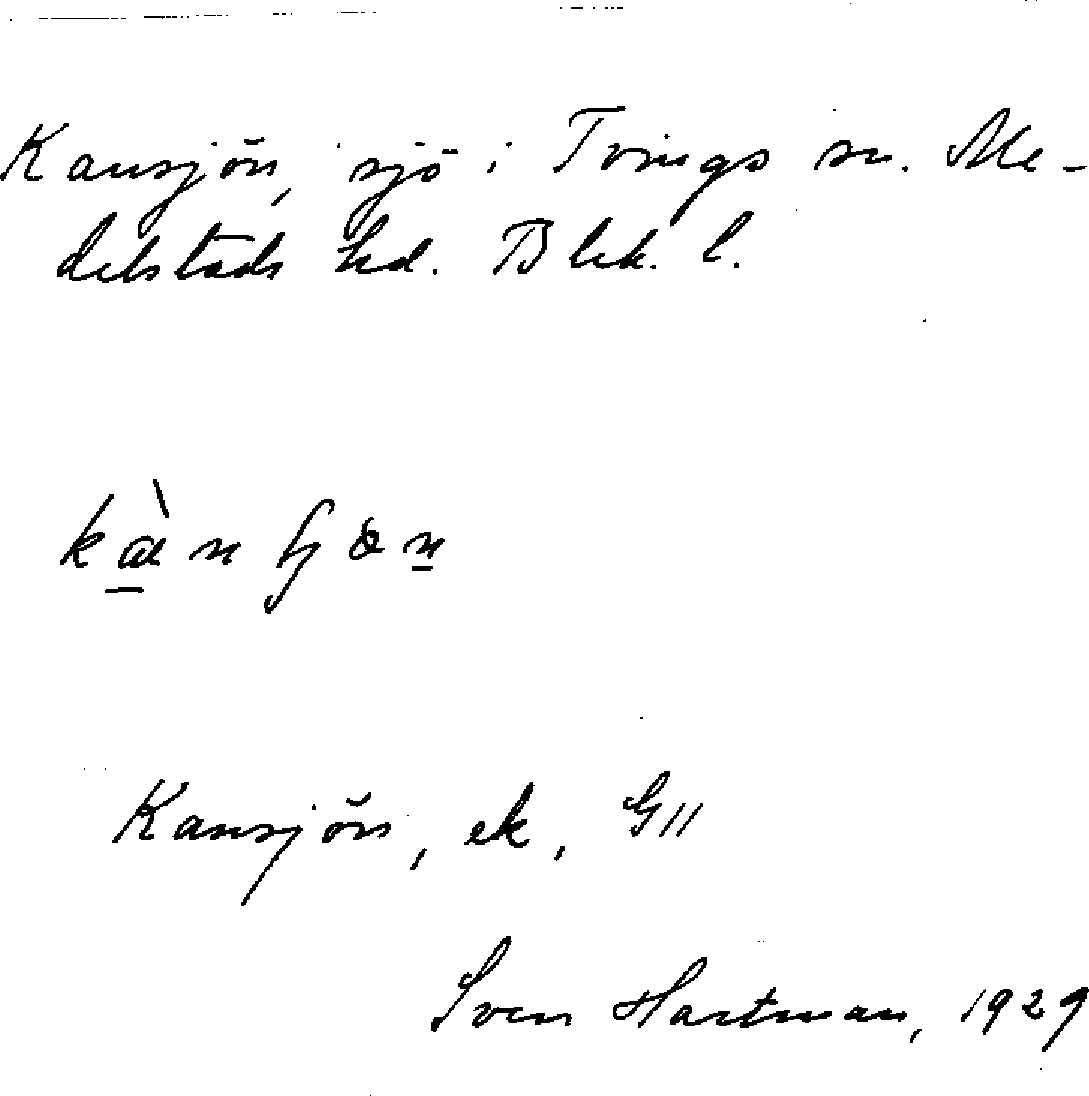 Kansjön, sjö i Tvings sn. Me-
delstads hd. Blek. l.
Kansjön, ek, G11
Sven Hartman, 1929